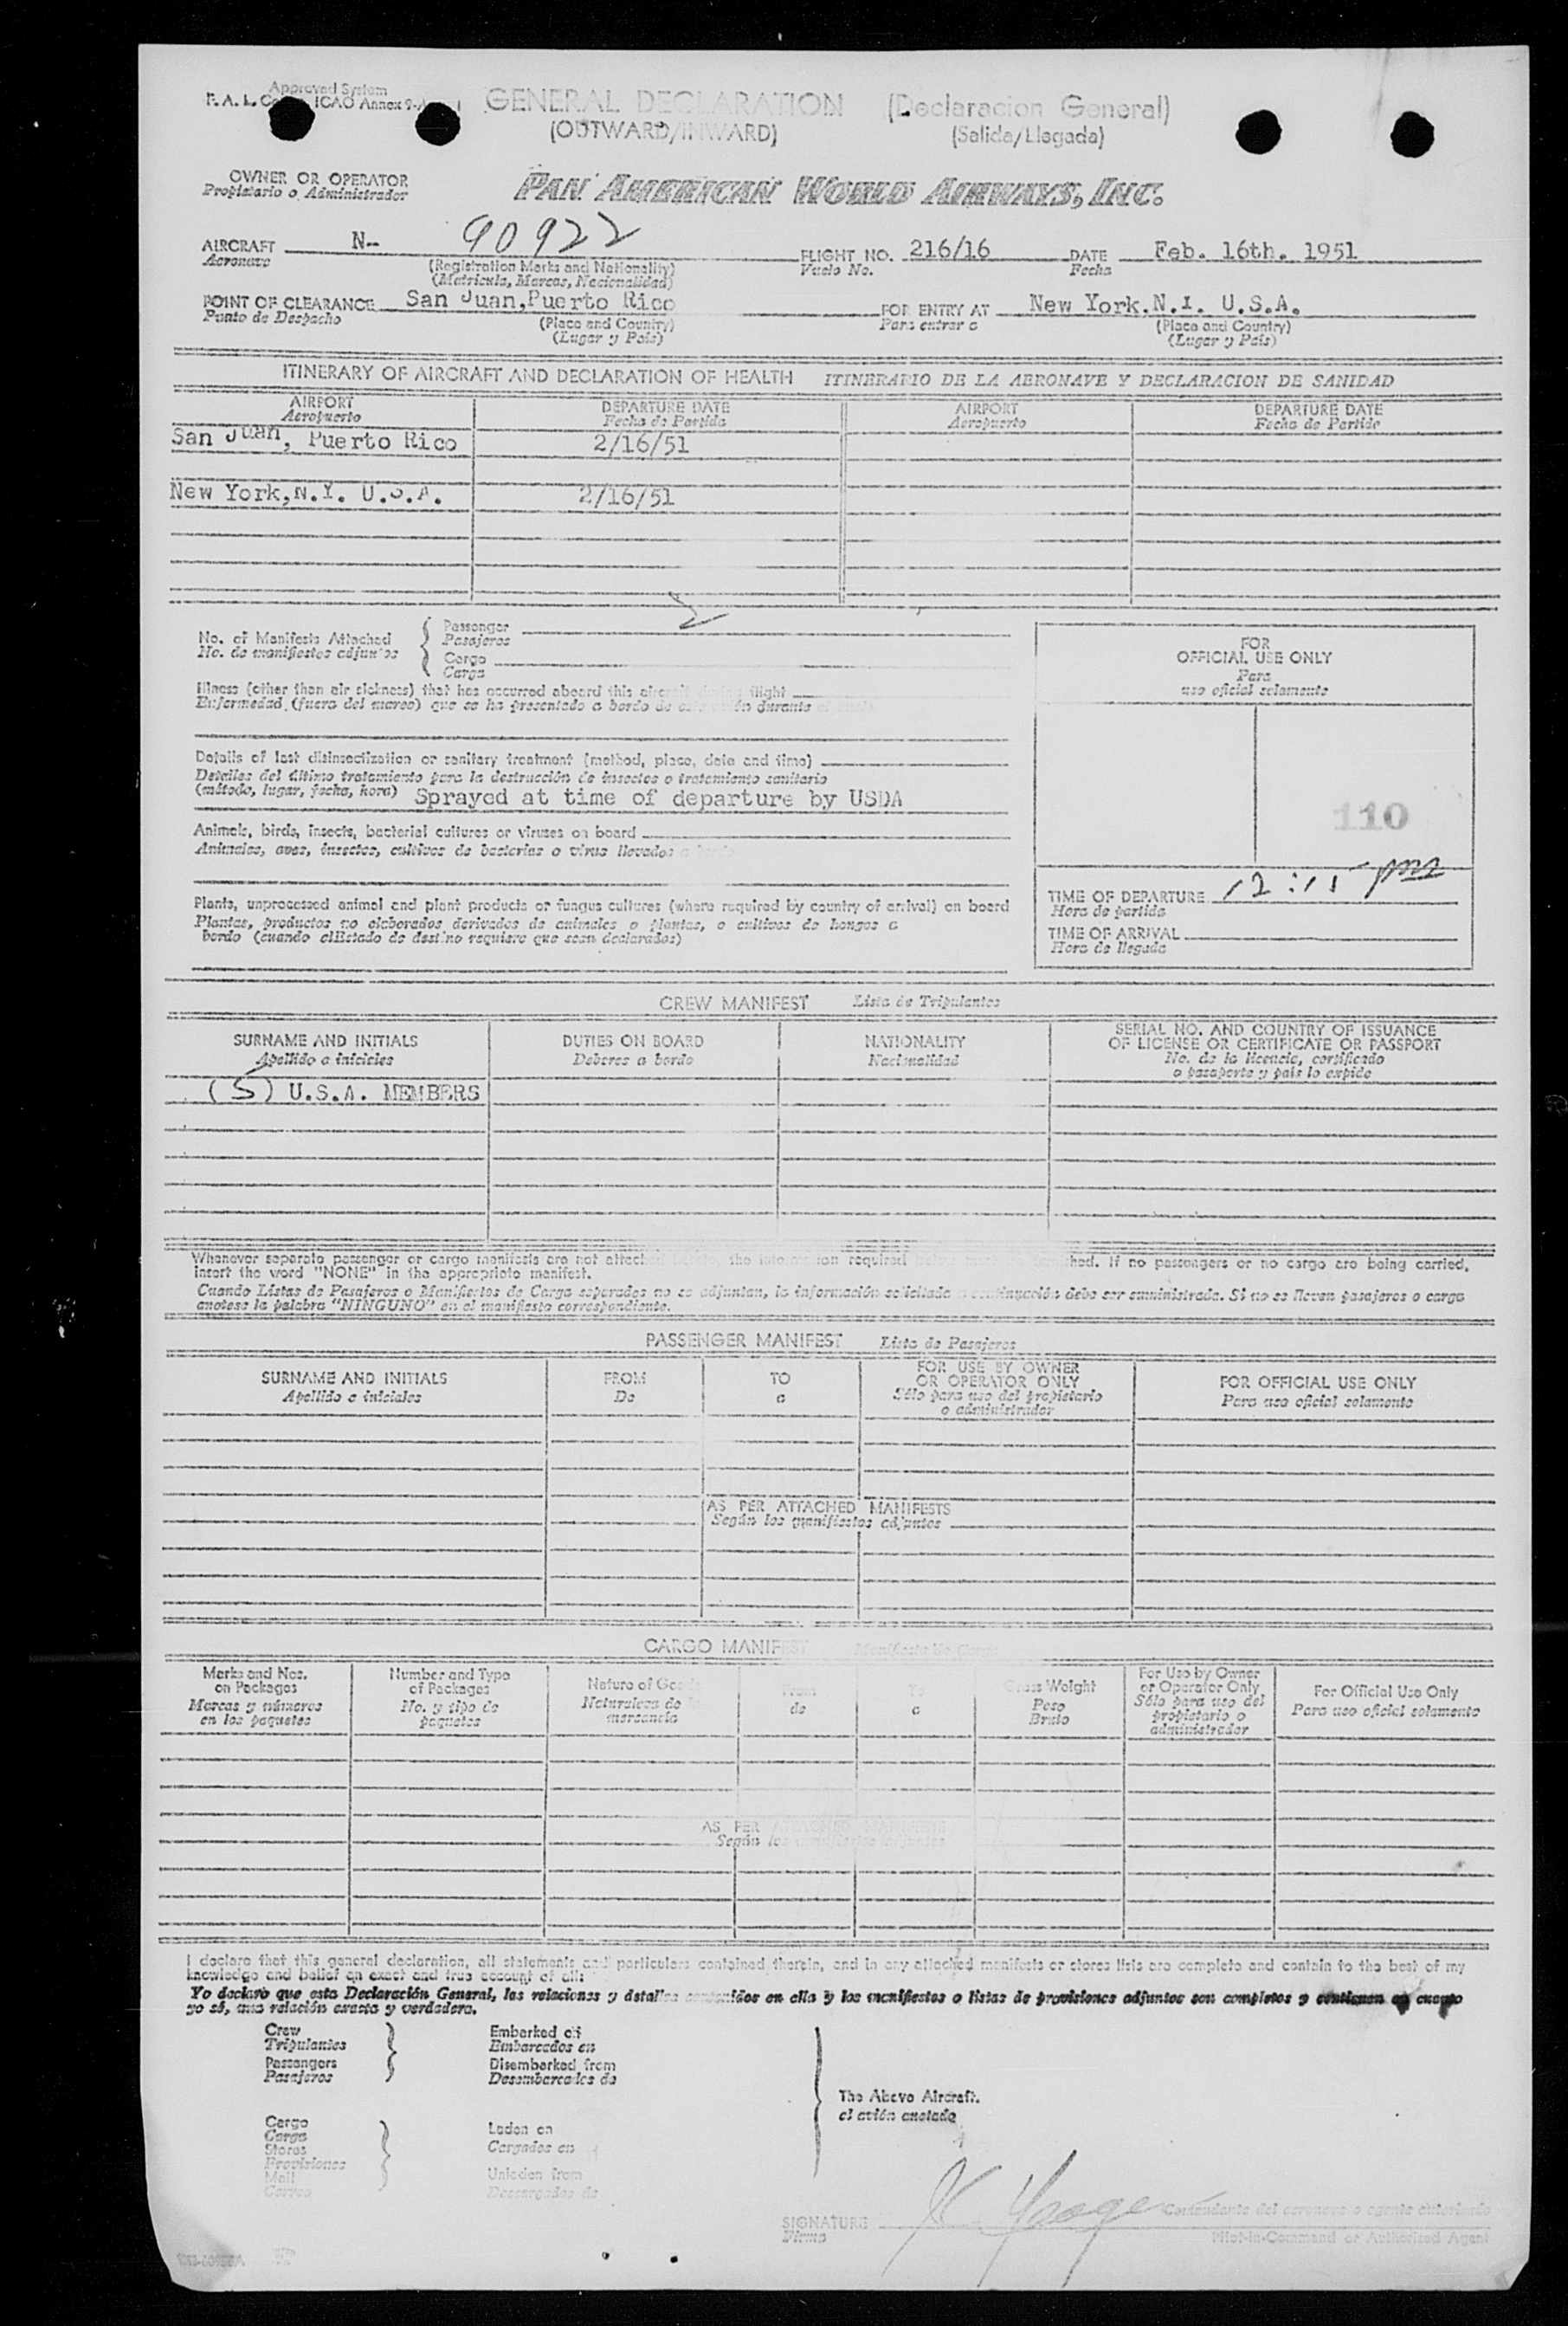 Approved System
F. A. L. ICAO Annex 9-A
GENERAL DECLARATION (Declaracion General)
(OUTWARD/INWARD) (Salida/Llegada)
OWNER OR OPERATOR
Propietario o Administrador
PAN AMERICAN WORLD AIRWAYS, INC.
AIRCRAFT N- 90922 FLIGHT NO. 216/16 DATE Feb. 16th. 1951
Aeronave (Registration Marks and Nationality) Vuelo No. Fecha
(Matricula, Marcas, Nacionalidad)
POINT OF CLEARANCE San Juan,Puerto Rico FOR ENTRY AT New York.N.Y. U.S.A.
Punto de Despacho (Place and Country) Para entrar a (Place and Country)
(Lugar y País) (Lugar y País)
ITINERARY OF AIRCRAFT AND DECLARATION OF HEALTH ITINERARIO DE LA AERONAVE Y DECLARACION DE SANIDAD
AIRPORT DEPARTURE DATE AIRPORT DEPARTURE DATE
Aeropuerto Fecha de Partida Aeropuerto Fecha de Partida
San Juan, Puerto Rico 2/16/51
New York,N.Y. U.S.A. 2/16/51
2
No. of Manifests Attached Passenger
No. de manifiestos adjuntos Pasajeros
Cargo
Carga
Illness (other than air sickness) that has occurred aboard this flight
Enfermedad (fuera del mareo) que se ha presentado a bordo de durante
Details of last disinsectization or sanitary treatment (method, place, date and time)
Detalles del último tratamiento para la destrucción de insectos o tratamiento sanitario
(método, lugar, fecha, hora) Sprayed at time of departure by USDA
Animals, birds, insects, bacterial cultures or viruses on board
Animales, aves, insectos, cultivos de bacterias o virus llevados
Plants, unprocessed animal and plant products or fungus cultures (where required by country of arrival) on board
Plantas, productos no elaborados derivados de animales o plantas, o cultivos de hongos a
bordo (cuando elEstado de destino requiere que sean declarados)
FOR
OFFICIAL USE ONLY
Para
uso oficial solamente
110
TIME OF DEPARTURE 12:15 pm
Hora de partida
TIME OF ARRIVAL
Hora de llegada
CREW MANIFEST Lista de Tripulantes
SURNAME AND INITIALS DUTIES ON BOARD NATIONALITY SERIAL NO. AND COUNTRY OF ISSUANCE
OF LICENSE OR CERTIFICATE OR PASSPORT
Apellido a iniciales Deberes a bordo Nacionalidad No. de la licencia, certificado
o pasaporte y país lo expide
(5) U.S.A. MEMBERS
Whenever separate passenger or cargo manifests are not required If no passengers or no cargo are being carried,
insert the word "NONE" in the appropriate manifest.
Cuando Listas de Pasajeros o Manifiestos de Carga separados no se adjuntan, la información solicitada a continuación debe ser suministrada. Si no se llevan pasajeros o carga
anotese la palabra "NINGUNO" en el manifiesto correspondiente.
PASSENGER MANIFEST Lista de Pasajeros
SURNAME AND INITIALS FROM TO FOR USE BY OWNER
OR OPERATOR ONLY FOR OFFICIAL USE ONLY
Apellido e iniciales De a Sólo para uso del propietario
o administrador Para uso oficial solamente
AS PER ATTACHED MANIFESTS
Según los manifiestos adjuntos
CARGO MANIFEST
Marks and Nos.
on Packages
Marcas y números
en los paquetes
Number and Type
of Packages
No. y tipo de
paquetes
Nature of
Naturaleza de
mercancía
From
de
To
a
Gross Weight
Peso
Bruto
For Use by Owner
or Operator Only
Sólo para uso del
propietario o
administrador
For Official Use Only
Para uso oficial solamente
AS PER ATTACHED MANIFESTS
Según los manifiestos adjuntos
I declare that this general declaration, all statements and particulars contained therein, and in any attached manifests or stores lists are complete and contain to the best of my
knowledge and belief an exact and true account of all:
Yo declaro que esta Declaración General, las relaciones y detalles contenidos en ella y los manifiestos o listas de provisiones adjuntos son completos y contienen en cuanto
yo sé, una relación exacta y verdadera.
Crew Embarked on
Tripulantes Embarcados en
Passengers Disembarked from
Pasajeros Desembarcados de
The Above Aircraft.
el avión anotado
Cargo Laden on
Carga Cargados en
Stores
Provisiones
Mail Unladen from
Correo Descargados de
SIGNATURE Comandante del aeronave o agente autorizado
Firma Pilot-in-Command or Authorized Agent